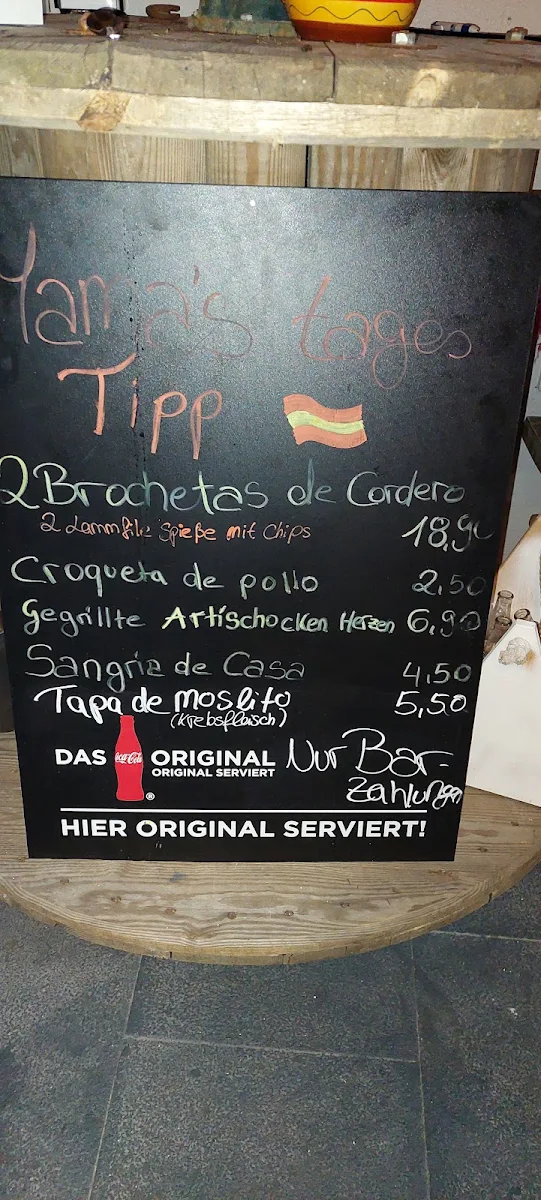 Mama's tages
Tipp
2 Brochetas de Cordero
2 Lammfile Spieße mit Chips 18,90
Croqueta de pollo 2,50
Gegrillte Artischocken Herzen 6,90
Sangria de Casa 4,50
Tapa de moslito 5,50
(Krebsfleisch)
DAS Coca-Cola ORIGINAL
ORIGINAL SERVIERT
Nur Bar-
Zahlungen
HIER ORIGINAL SERVIERT!